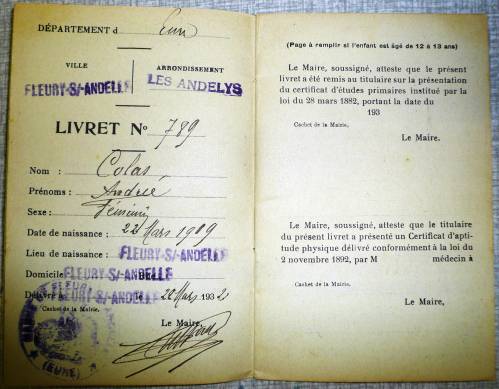 DÉPARTEMENT d Eure
VILLE
ARRONDISSEMENT
FLEURY-S/-ANDELLE
LES ANDELYS
LIVRET No 789
Nom : Colas
Prénoms : Andrée
Sexe : Féminin
Date de naissance : 22 Mars 1919
Lieu de naissance : FLEURY-S/-ANDELLE
Domicile FLEURY-S/-ANDELLE
Délivré à FLEURY-S/-ANDELLE le 20 Mars 1932
Cachet de la Mairie.
Le Maire,
(EURE)
(Page à remplir si l'enfant est âgé de 12 à 13 ans)
Le Maire, soussigné, atteste que le présent
livret a été remis au titulaire sur la présentation
du certificat d'études primaires institué par la
loi du 28 mars 1882, portant la date du
193
Cachet de la Mairie.
Le Maire.
Le Maire, soussigné, atteste que le titulaire
du présent livret a présenté un Certificat d'apti-
tude physique délivré conformément à la loi du
2 novembre 1892, par M médecin à
Cachet de la Mairie.
Le Maire,